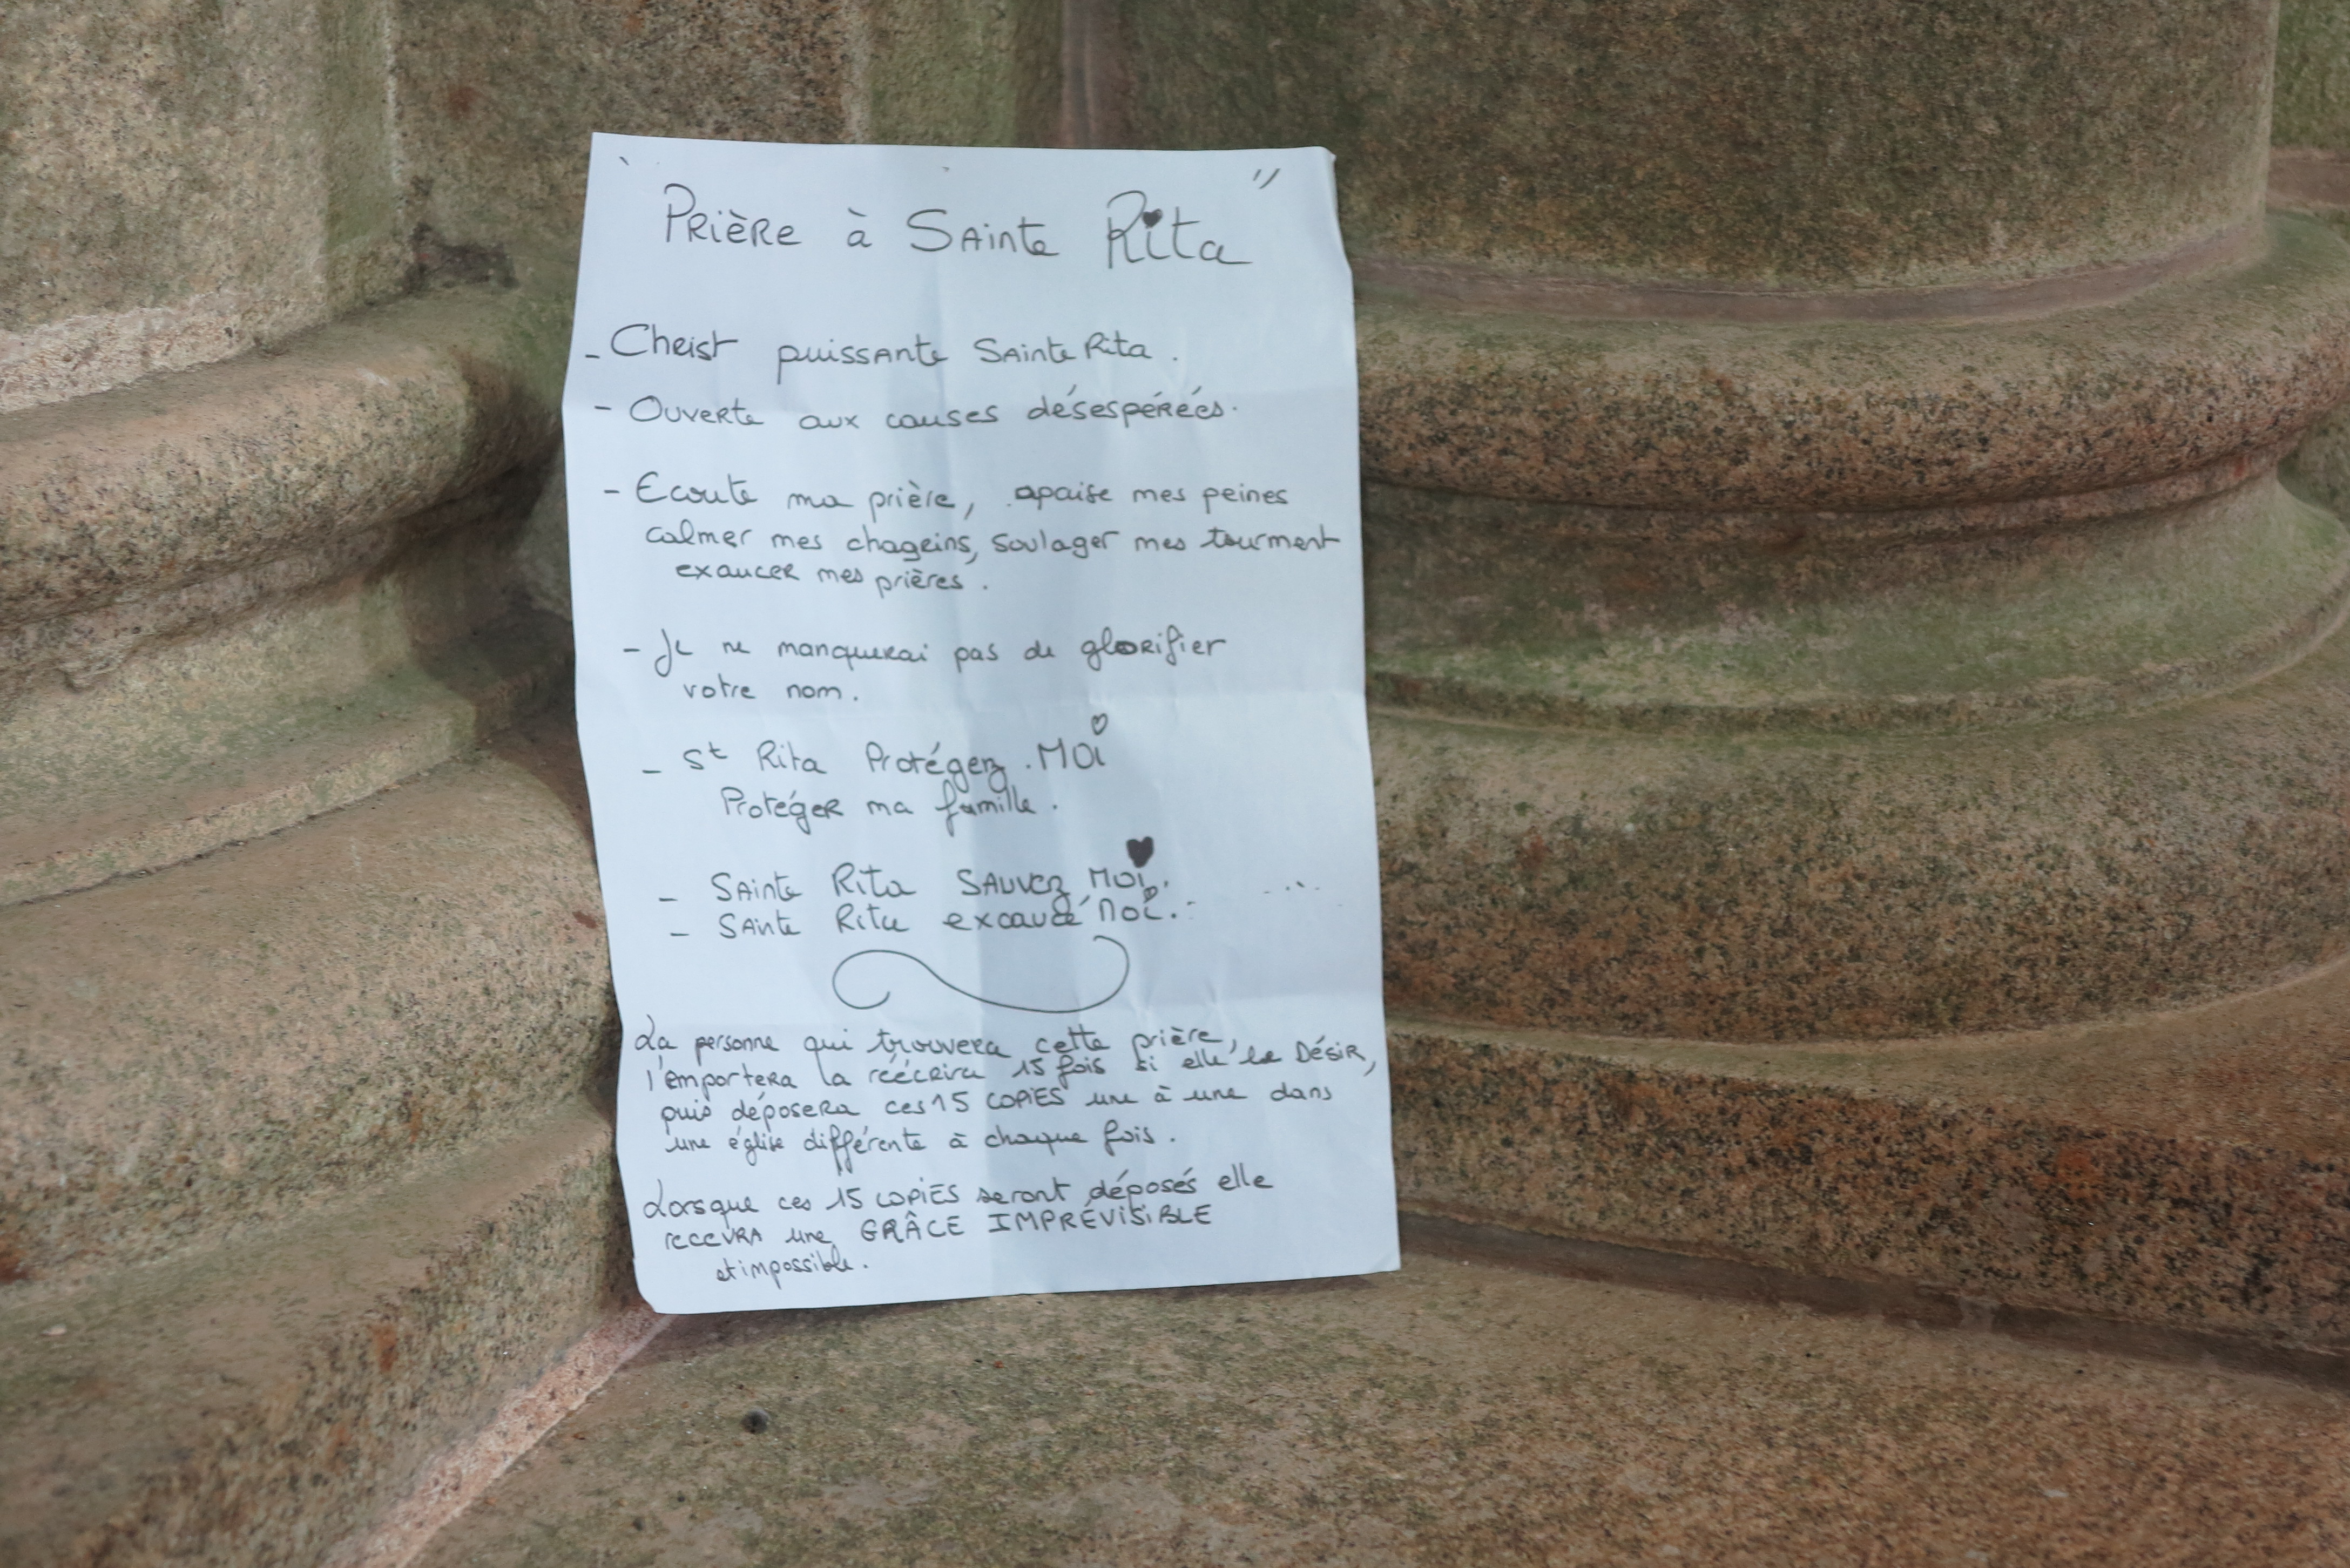 " Prière à Sainte Rita "
- Christ puissante Sainte Rita.
- Ouverte aux causes désespérées.
- Ecoute ma prière, apaise mes peines
calmer mes chagrins, soulager mes tourment
exaucer mes prières.
- Je ne manquerai pas de glorifier
votre nom.
- St Rita Protégez. MOi
Protéger ma famille.
- Sainte Rita SAUVEZ MOi.
- Sainte Rita excaucé moi.
La personne qui trouvera cette prière,
l'emportera la réécrira 15 fois si elle le Désir,
puis déposera ces 15 COPiES une à une dans
une église différente à chaque fois.
Lorsque ces 15 COPiES seront déposés elle
recevra une GRÂCE IMPRÉVISiBLE
et impossible.